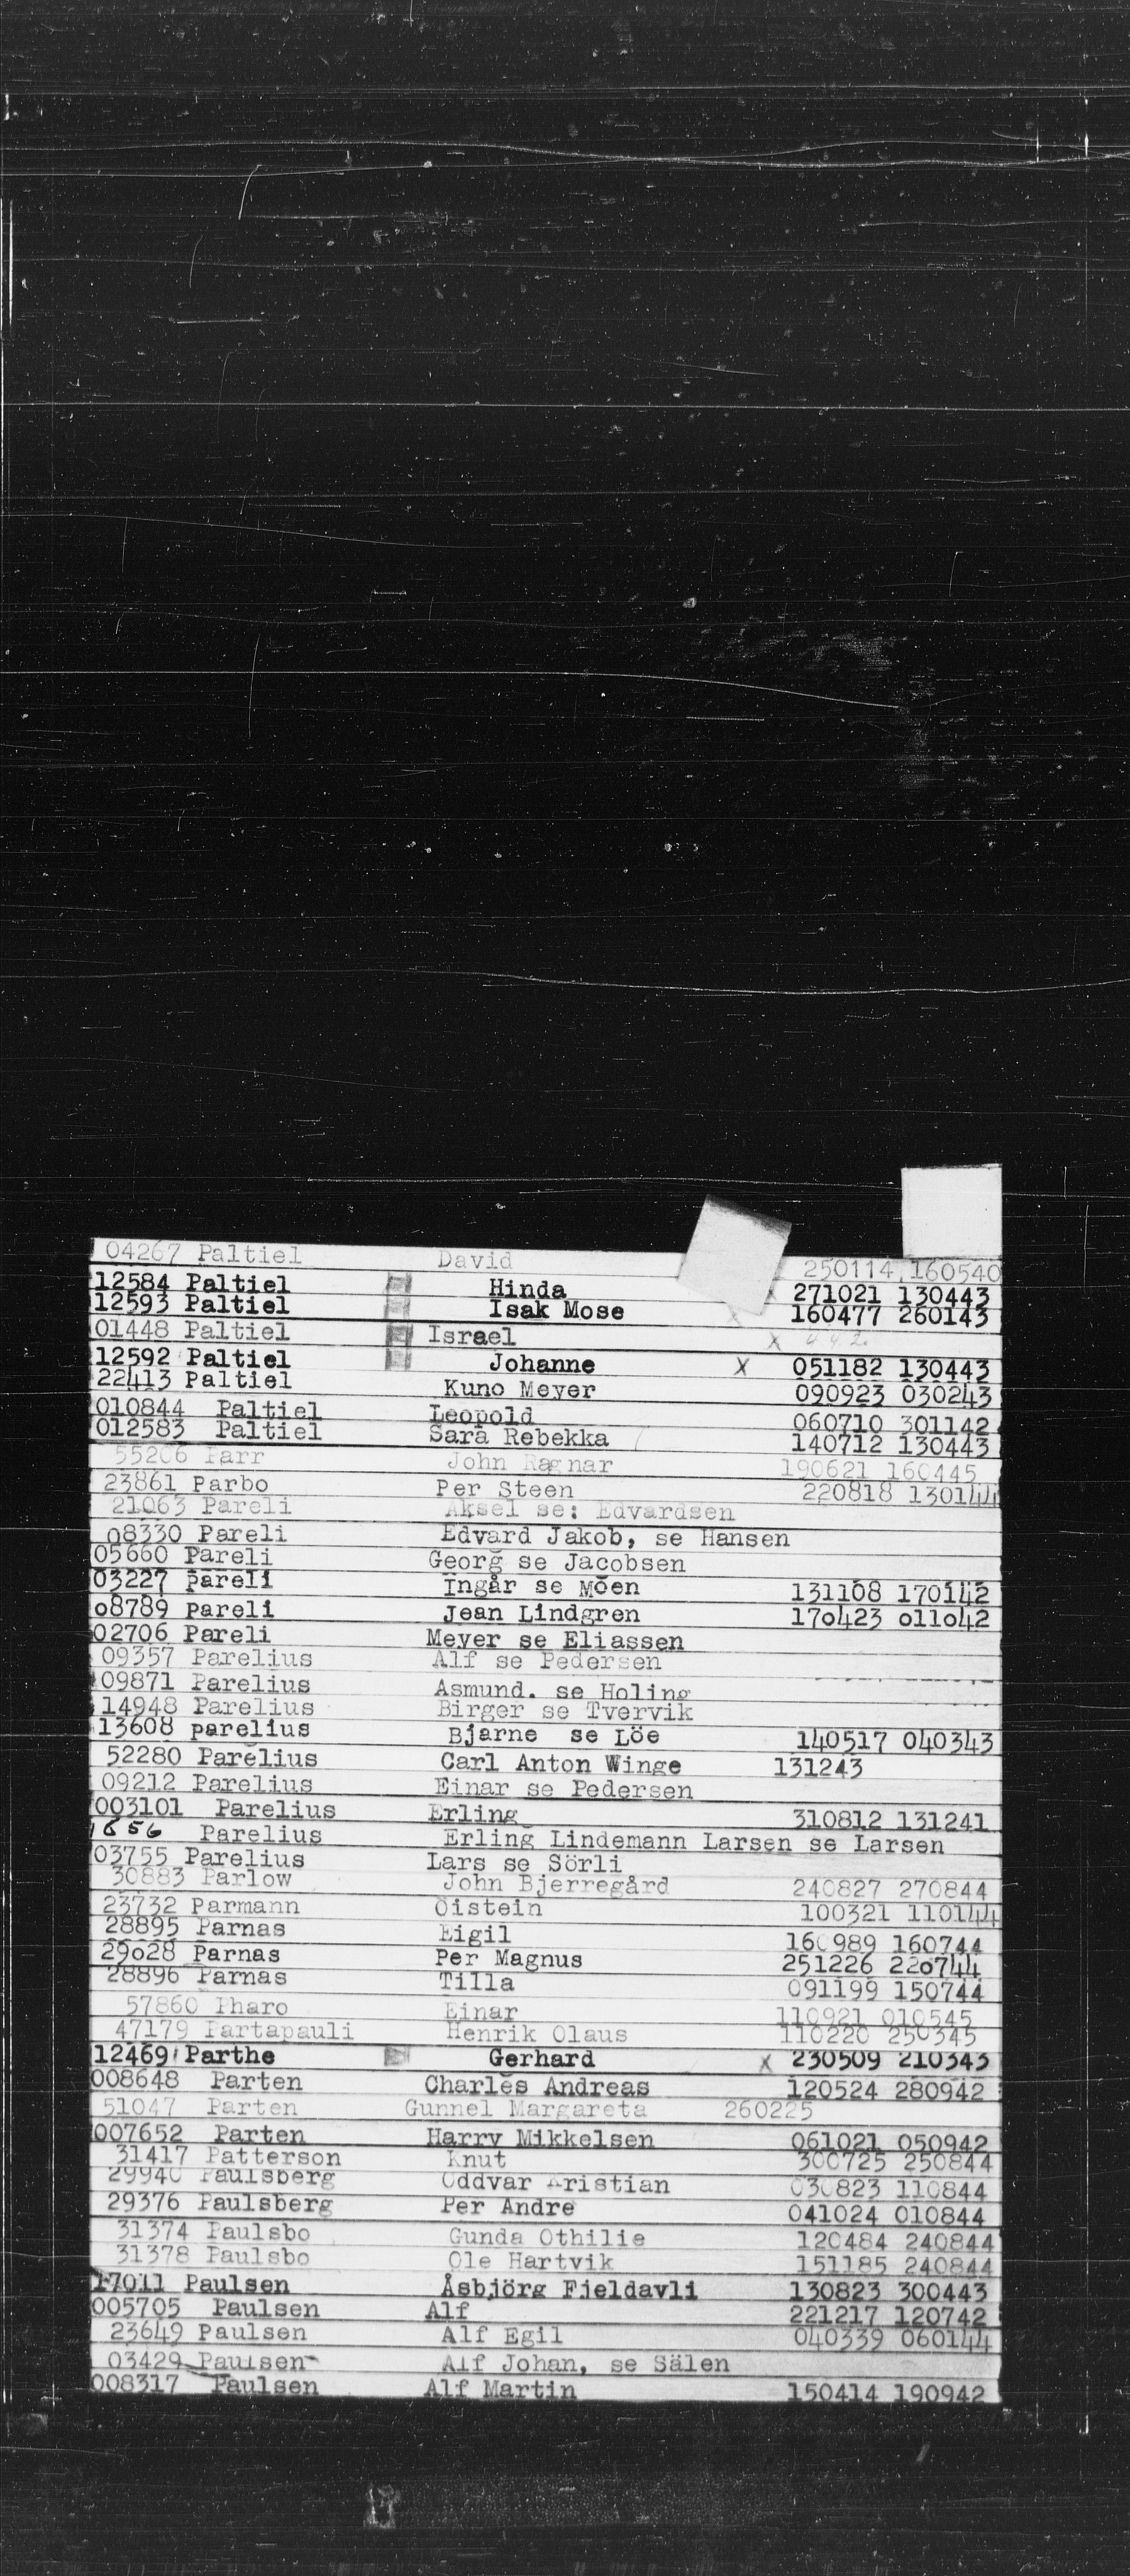 04267 Paltiel David 250114 160540
12584 Paltiel Hinda 271021 130443
12593 Paltiel Isak Mose X 160477 260143
01448 Paltiel Israel X
12592 Paltiel Johanne X 051182 130443
22413 Paltiel Kuno Meyer 090923 030243
010844 Paltiel Leopold 060710 301142
012583 Paltiel Sara Rebekka 140712 130443
55206 Parr John Ragnar 190621 160445
23861 Parbo Per Steen 220818 130144
21063 Pareli Aksel se: Edvardsen
08330 Pareli Edvard Jakob, se Hansen
05660 Pareli Georg se Jacobsen
03227 pareli Ingar se Moen 131108 170142
o8789 pareli Jean Lindgren 17o423 o11o42
02706 Pareli Meyer se Eliassen
09357 Parelius Alf se Pedersen
09871 Parelius Asmund. se Holing
14948 Parelius Birger se Tvervik
13608 parelius Bjarne se Löe 140517 040343
52280 Parelius Carl Anton Winge 131243
09212 Parelius Einar se Pedersen
003101 Parelius Erling 310812 131241
1656 Parelius Erling Lindemann Larsen se Larsen
03755 Parelius Lars se Sörli
30883 Parlow John Bjerregård 240827 270844
23732 Parmann Öistein 100321 110144
28895 Parnas Eigil 160989 160744
29o28 Parnas Per Magnus 251226 22o744
28896 Parnas Tilla 091199 150744
57860 Pharo Einar 110921 010545
47179 Partapauli Henrik Olaus 110220 250345
12469 Parthe Gerhard X 230509 210343
008648 Parten Charles Andreas 120524 280942
51047 Parten Gunnel Margareta 260225
007652 Parten Harry Mikkelsen 061021 050942
31417 Patterson Knut 300725 250844
29940 Paulsberg Oddvar Kristian 030823 110844
29376 Paulsberg Per Andre 041024 010844
31374 Paulsbo Gunda Othilie 120484 240844
31378 Paulsbo Ole Hartvik 151185 240844
17011 Paulsen Åsbjörg Fjeldavli 130823 300443
005705 Paulsen Alf 221217 120742
23649 Paulsen Alf Egil 040339 060144
03429 Paulsen Alf Johan, se Sälen
008317 Paulsen Alf Martin 150414 190942